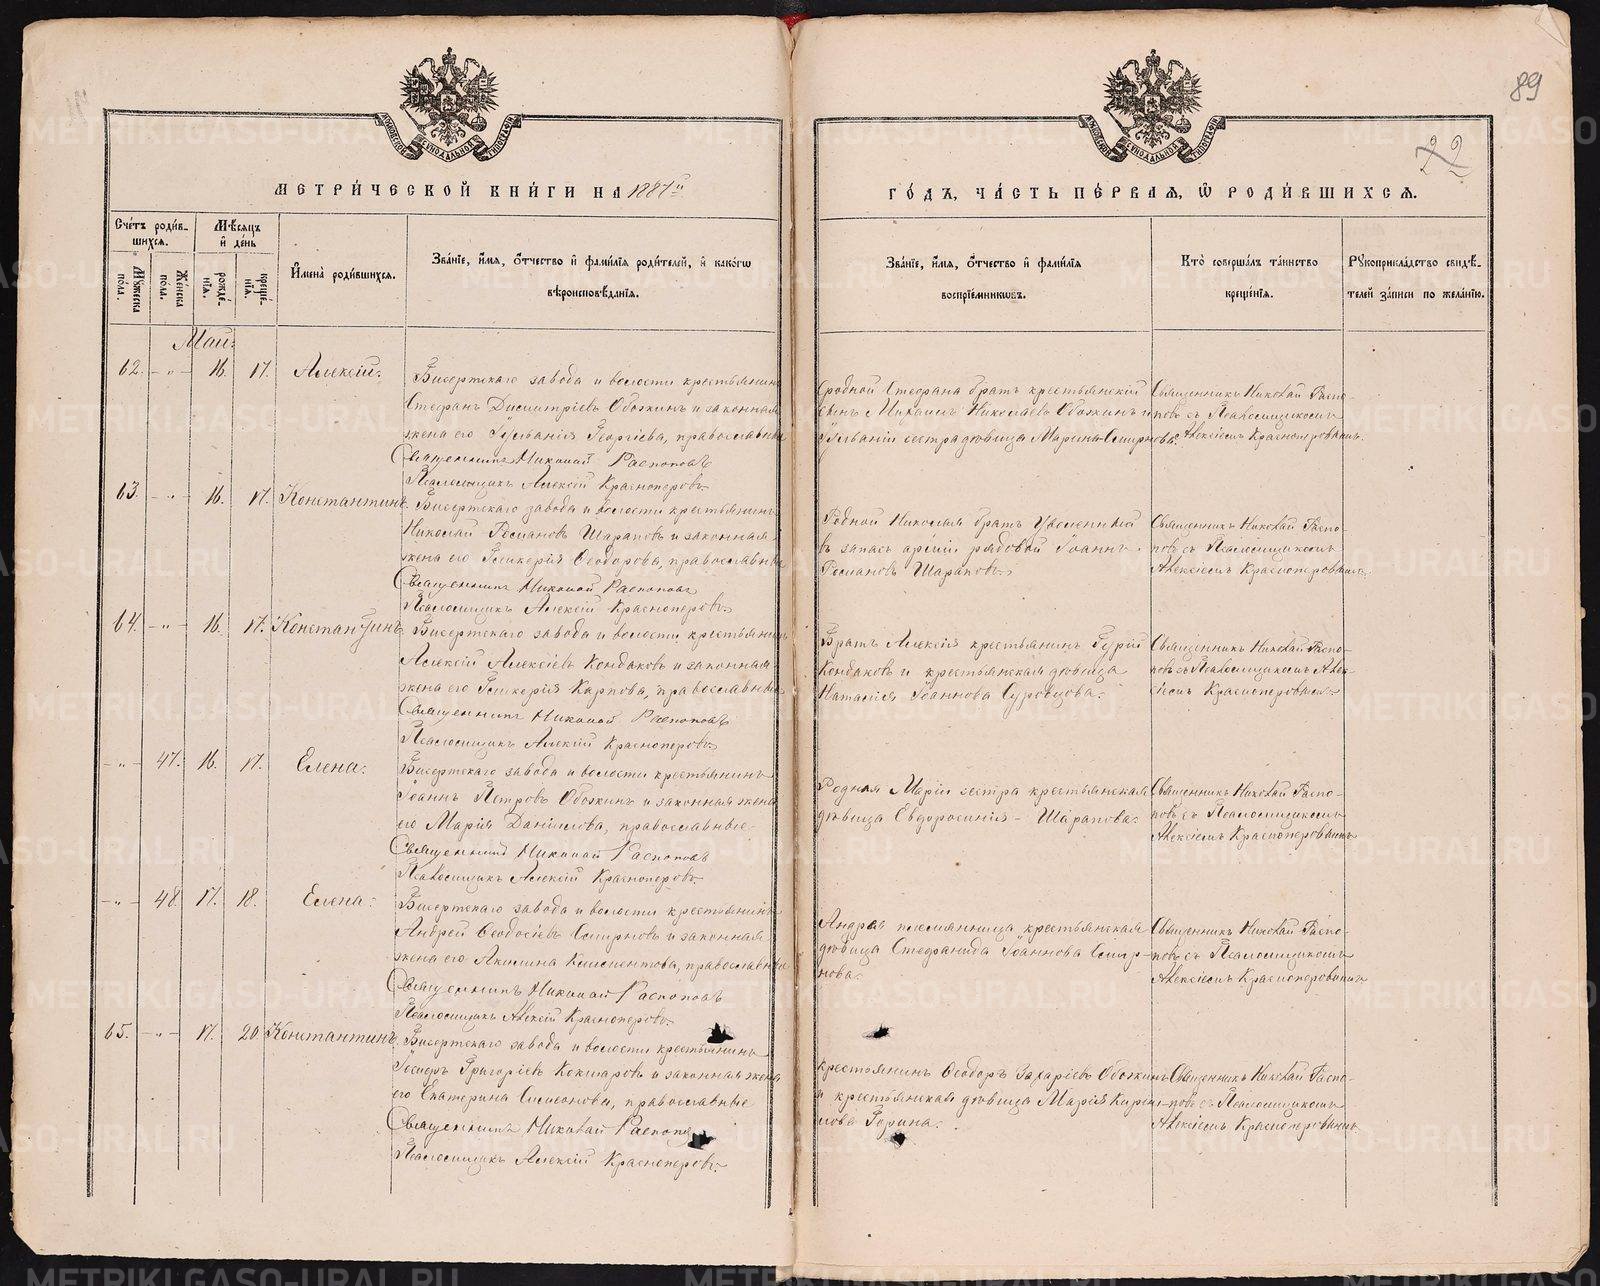 89
22
МЕТРИЧЕСКОЙ КНИГИ НА 1887й
ГОДЪ, ЧАСТЬ ПЕРВАЯ, Ѡ РОДИВШИХСЯ.
Счетъ родив-
шихся.
Мѣсяцъ
и день
Мужеска
пола.
Женска
пола.
рожде-
нія.
креще-
нія.
Имена родившихся.
Званіе, имя, отчество и фамилія родителей, и какогѡ
вѣроисповѣданія.
Званіе, имя, отчество и фамилія
воспріемниковъ.
Кто совершалъ таинство
крещенія.
Рукоприкладство свидѣ-
телей записи по желанію.
Май:
62. - " - 16. 17. Алексій.
Бисертскаго завода и волости крестьянинъ
Стефанъ Димитріевъ Обожинъ и законная
жена его Іуліанія Георгіева, православные
Священникъ Николай Распоповъ
Псаломщикъ Алексій Красноперовъ
Сродной Стефана братъ крестьянскій
сынъ Михаилъ Николаевъ Обожинъ и
Іуліаніи сестра дѣвица Марина Смирнова.
Священникъ Николай Распо-
повъ съ Псаломщикомъ
Алексіемъ Красноперовымъ.
63. - " - 16. 17. Константинъ.
Бисертскаго завода и волости крестьянинъ
Николай Романовъ Шараповъ и законная
жена его Гликерія Ѳеодорова, православные
Священникъ Николай Распоповъ
Псаломщикъ Алексій Красноперовъ
Родной Николая братъ Уволенный
въ запасъ арміи рядовой Іоаннъ
Романовъ Шараповъ.
Священникъ Николай Распо-
повъ съ Псаломщикомъ
Алексіемъ Красноперовымъ.
64. - " - 16. 17. Константинъ
Бисертскаго завода и волости крестьянинъ
Алексій Алексіевъ Кондаковъ и законная
жена его Гликерія Карпова, православные
Священникъ Николай Распоповъ
Псаломщикъ Алексій Красноперовъ
Братъ Алексія крестьянинъ Гурій
Кондаковъ и крестьянская дѣвица
Наталія Іоаннова Суровцова.
Священникъ Николай Распо-
повъ съ Псаломщикомъ Алек-
сіемъ Красноперовымъ
- " - 47. 16. 17. Елена.
Бисертскаго завода и волости крестьянинъ
Іоаннъ Петровъ Обожинъ и законная жена
его Марія Данилова, православные
Священникъ Николай Распоповъ
Псаломщикъ Алексій Красноперовъ
Родная Маріи сестра крестьянская
дѣвица Евдросинія - Шарапова.
Священникъ Николай Распо-
повъ съ Псаломщикомъ
Алексіемъ Красноперовымъ
- " - 48. 17. 18. Елена.
Бисертскаго завода и волости крестьянинъ
Андрей Ѳеодосіевъ Смирновъ и законная
жена его Акилина Климентова, православные
Священникъ Николай Распоповъ
Псаломщикъ Алексій Красноперовъ
Андрея племянница крестьянская
дѣвица Стефанида Іоаннова Смир-
нова.
Священникъ Николай Распо-
повъ съ Псаломщикомъ
Алексіемъ Красноперовымъ
65. - " - 17. 20. Константинъ.
Бисертскаго завода и волости крестьянинъ
Іосифъ Григоріевъ Кошаровъ и законная жена
его Екатерина Симеонова, православные
Священникъ Николай Распопо
Псаломщикъ Алексій Красноперовъ
Крестьянинъ Ѳеодоръ Захаріевъ Обожинъ
и крестьянская дѣвица Марія Кирил-
лова Горина.
Священникъ Николай Распо-
повъ съ Псаломщикомъ
Алексіемъ Красноперовымъ